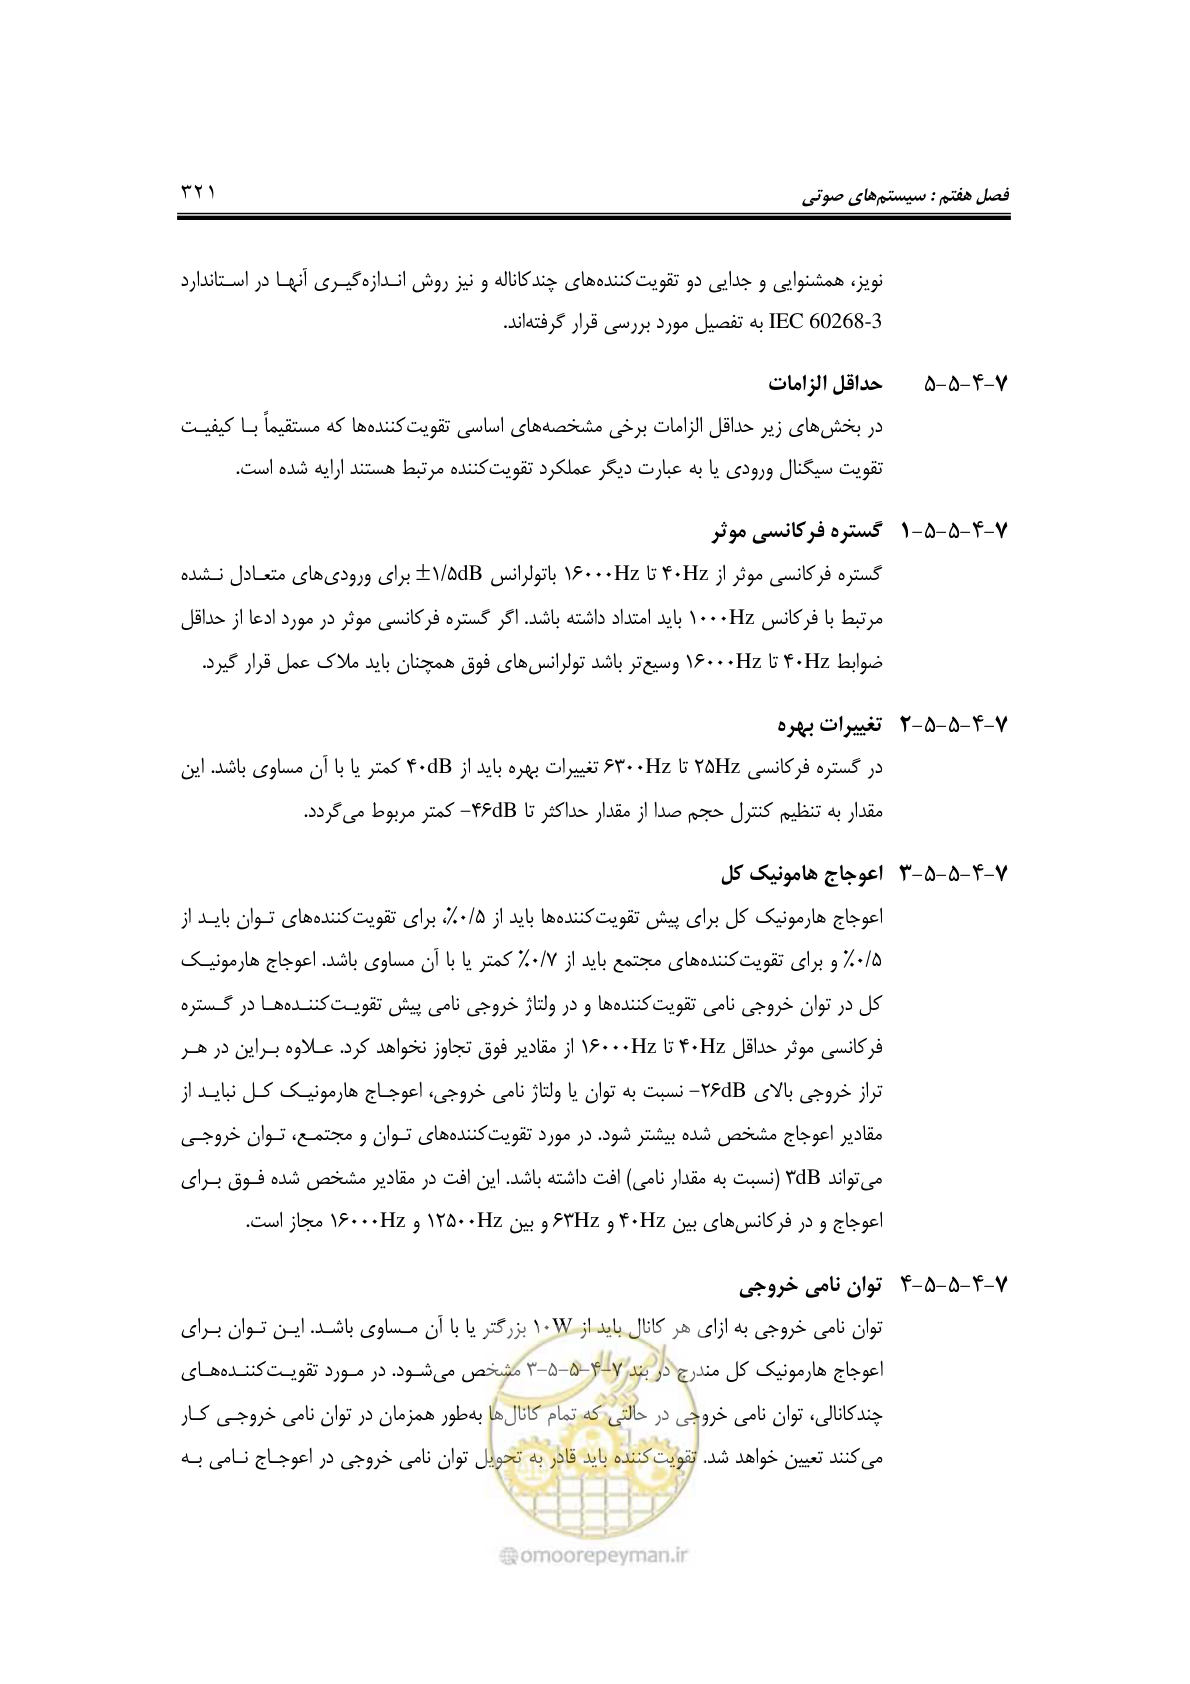 فصل هفتم : سیستم‌های صوتی ۳۲۱
نویز، همشنوایی و جدایی دو تقویت‌کننده‌های چندکاناله و نیز روش انـدازه‌گیـری آنهـا در اسـتاندارد
IEC 60268-3 به تفصیل مورد بررسی قرار گرفته‌اند.
۷-۴-۵-۵ حداقل الزامات
در بخش‌های زیر حداقل الزامات برخی مشخصه‌های اساسی تقویت‌کننده‌ها که مستقیماً بـا کیفیـت
تقویت سیگنال ورودی یا به عبارت دیگر عملکرد تقویت‌کننده مرتبط هستند ارایه شده است.
۷-۴-۵-۵-۱ گستره فرکانسی موثر
گستره فرکانسی موثر از ۴۰Hz تا ۱۶۰۰۰Hz باتولرانس ±۱/۵dB برای ورودی‌های متعـادل نـشده
مرتبط با فرکانس ۱۰۰۰Hz باید امتداد داشته باشد. اگر گستره فرکانسی موثر در مورد ادعا از حداقل
ضوابط ۴۰Hz تا ۱۶۰۰۰Hz وسیع‌تر باشد تولرانس‌های فوق همچنان باید ملاک عمل قرار گیرد.
۷-۴-۵-۵-۲ تغییرات بهره
در گستره فرکانسی ۲۵Hz تا ۶۳۰۰Hz تغییرات بهره باید از ۴۰dB کمتر یا با آن مساوی باشد. این
مقدار به تنظیم کنترل حجم صدا از مقدار حداکثر تا ۴۶dB- کمتر مربوط می‌گردد.
۷-۴-۵-۵-۳ اعوجاج هامونیک کل
اعوجاج هارمونیک کل برای پیش تقویت‌کننده‌ها باید از ۰/۵٪، برای تقویت‌کننده‌های تـوان بایـد از
۰/۵٪ و برای تقویت‌کننده‌های مجتمع باید از ۰/۷٪ کمتر یا با آن مساوی باشد. اعوجاج هارمونیـک
کل در توان خروجی نامی تقویت‌کننده‌ها و در ولتاژ خروجی نامی پیش تقویـت‌کننـده‌هـا در گـستره
فرکانسی موثر حداقل ۴۰Hz تا ۱۶۰۰۰Hz از مقادیر فوق تجاوز نخواهد کرد. عـلاوه بـراین در هـر
تراز خروجی بالای ۲۶dB- نسبت به توان یا ولتاژ نامی خروجی، اعوجـاج هارمونیـک کـل نبایـد از
مقادیر اعوجاج مشخص شده بیشتر شود. در مورد تقویت‌کننده‌های تـوان و مجتمـع، تـوان خروجـی
می‌تواند ۳dB (نسبت به مقدار نامی) افت داشته باشد. این افت در مقادیر مشخص شده فـوق بـرای
اعوجاج و در فرکانس‌های بین ۴۰Hz و ۶۳Hz و بین ۱۲۵۰۰Hz و ۱۶۰۰۰Hz مجاز است.
۷-۴-۵-۵-۴ توان نامی خروجی
توان نامی خروجی به ازای هر کانال باید از ۱۰W بزرگتر یا با آن مـساوی باشـد. ایـن تـوان بـرای
اعوجاج هارمونیک کل مندرج در بند ۷-۴-۵-۵-۳ مشخص می‌شـود. در مـورد تقویـت‌کننـده‌هـای
چندکانالی، توان نامی خروجی در حالتی که تمام کانال‌ها به‌طور همزمان در توان نامی خروجـی کـار
می‌کنند تعیین خواهد شد. تقویت‌کننده باید قادر به تحویل توان نامی خروجی در اعوجـاج نـامی بـه
امور پیمان
@omoorepeyman.ir